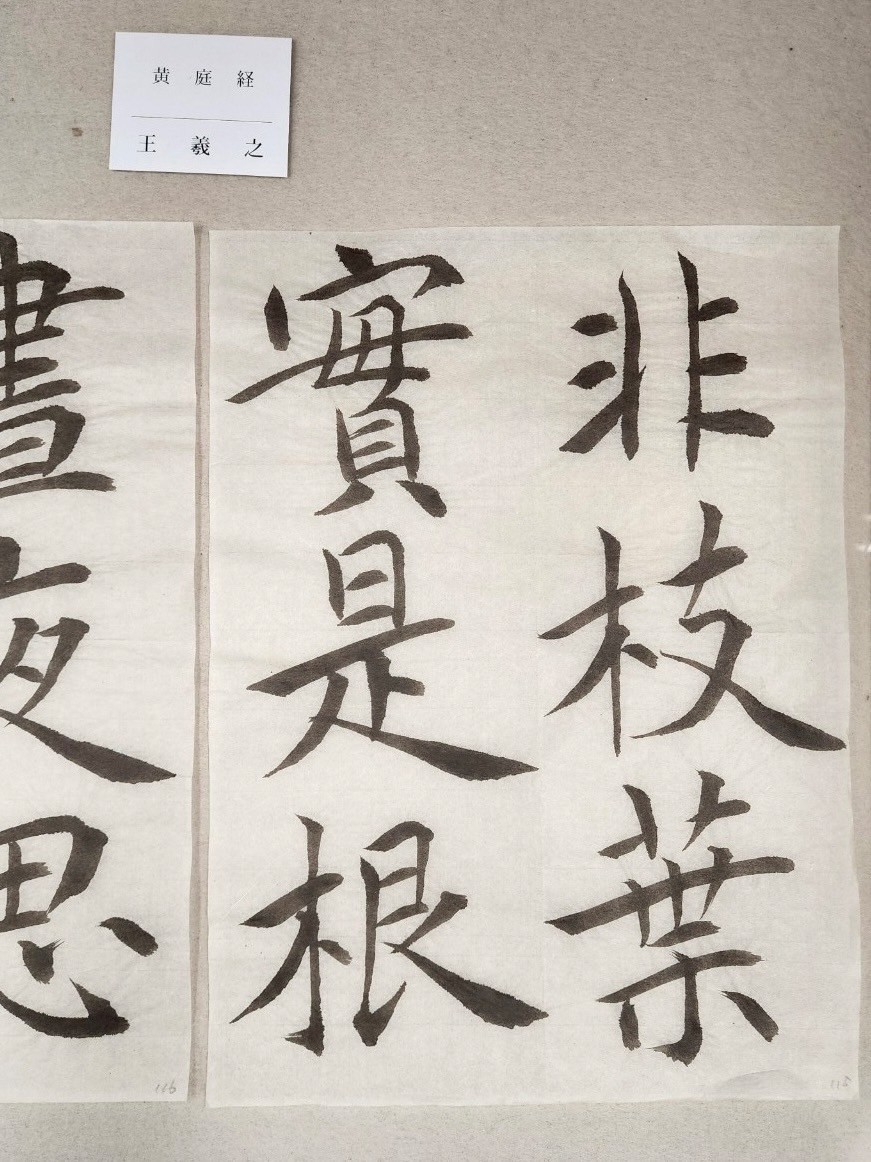 黄庭経
王羲之
非枝葉
實是根
晝夜思
115
116